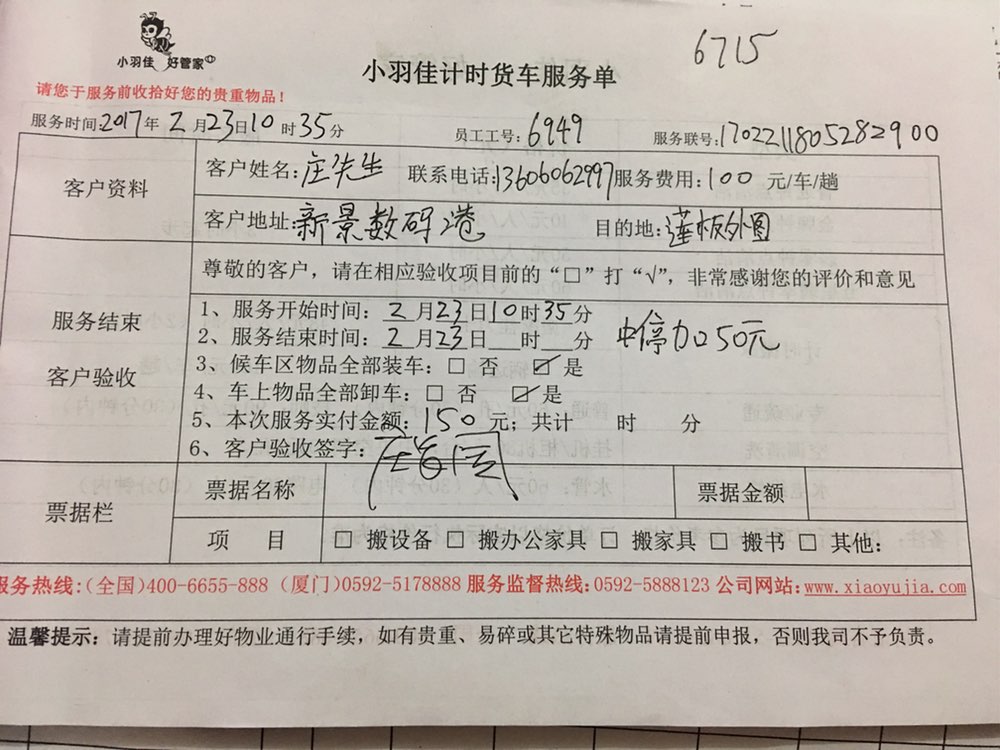 6715
小羽佳 好管家
小羽佳计时货车服务单
请您于服务前收拾好您的贵重物品！
服务时间:2017年 2 月23日10 时35分 员工工号: 6949 服务联号:17022118052829 00
客户资料
客户姓名:庄先生 联系电话:13606062997 服务费用:100 元/车/趟
客户地址:新景数码港 目的地:莲板外图
尊敬的客户，请在相应验收项目前的“□”打“√”，非常感谢您的评价和意见
服务结束
客户验收
1、服务开始时间: 2 月23日10时35分
2、服务结束时间: 2 月23日 时 分 中停加050元
3、候车区物品全部装车: □ 否 ☑ 是
4、车上物品全部卸车: □ 否 ☑ 是
5、本次服务实付金额:150元; 共计 时 分
6、客户验收签字:
票据栏
票据名称 票据金额
项 目 □ 搬设备 □ 搬办公家具 □ 搬家具 □ 搬书 □ 其他:
服务热线:(全国)400-6655-888 (厦门)0592-5178888 服务监督热线:0592-5888123 公司网站:www.xiaoyujia.com
温馨提示: 请提前办理好物业通行手续，如有贵重、易碎或其它特殊物品请提前申报，否则我司不予负责。